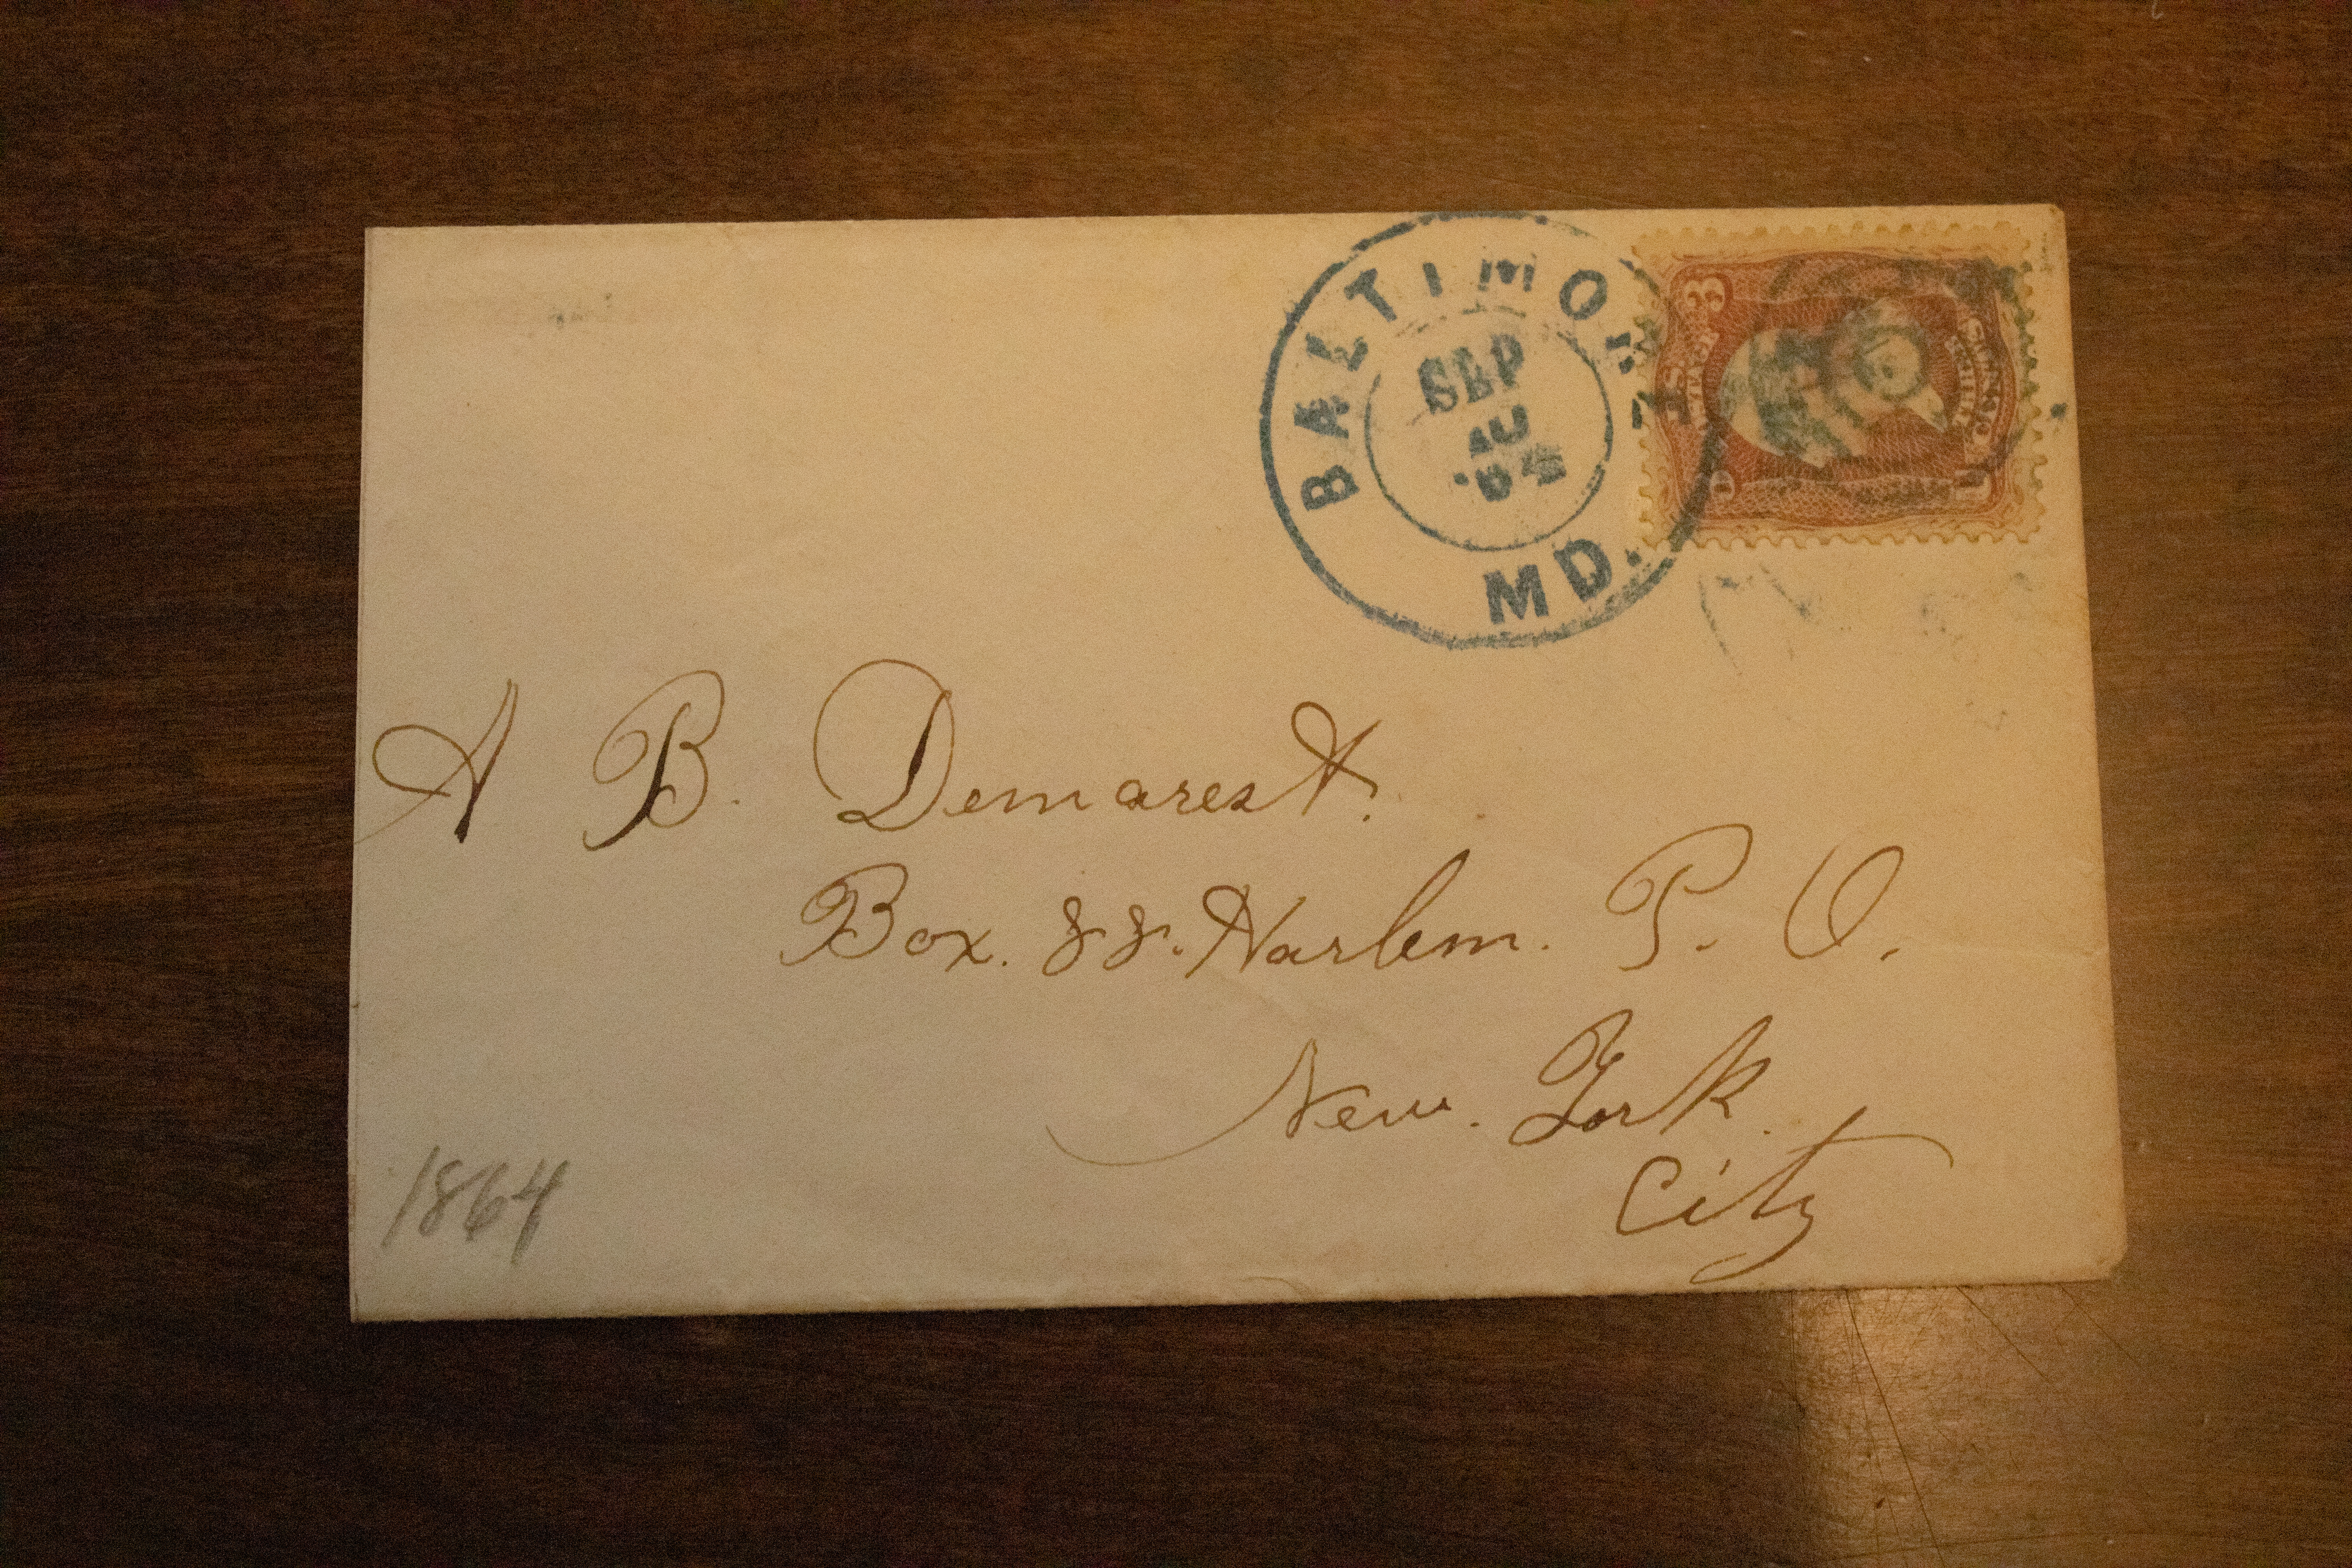 BALTIMORE
SEP
10
'64
MD.
3
A B. Demarest.
Box. 88. Harlem. P. O.
New. York.
City
1864